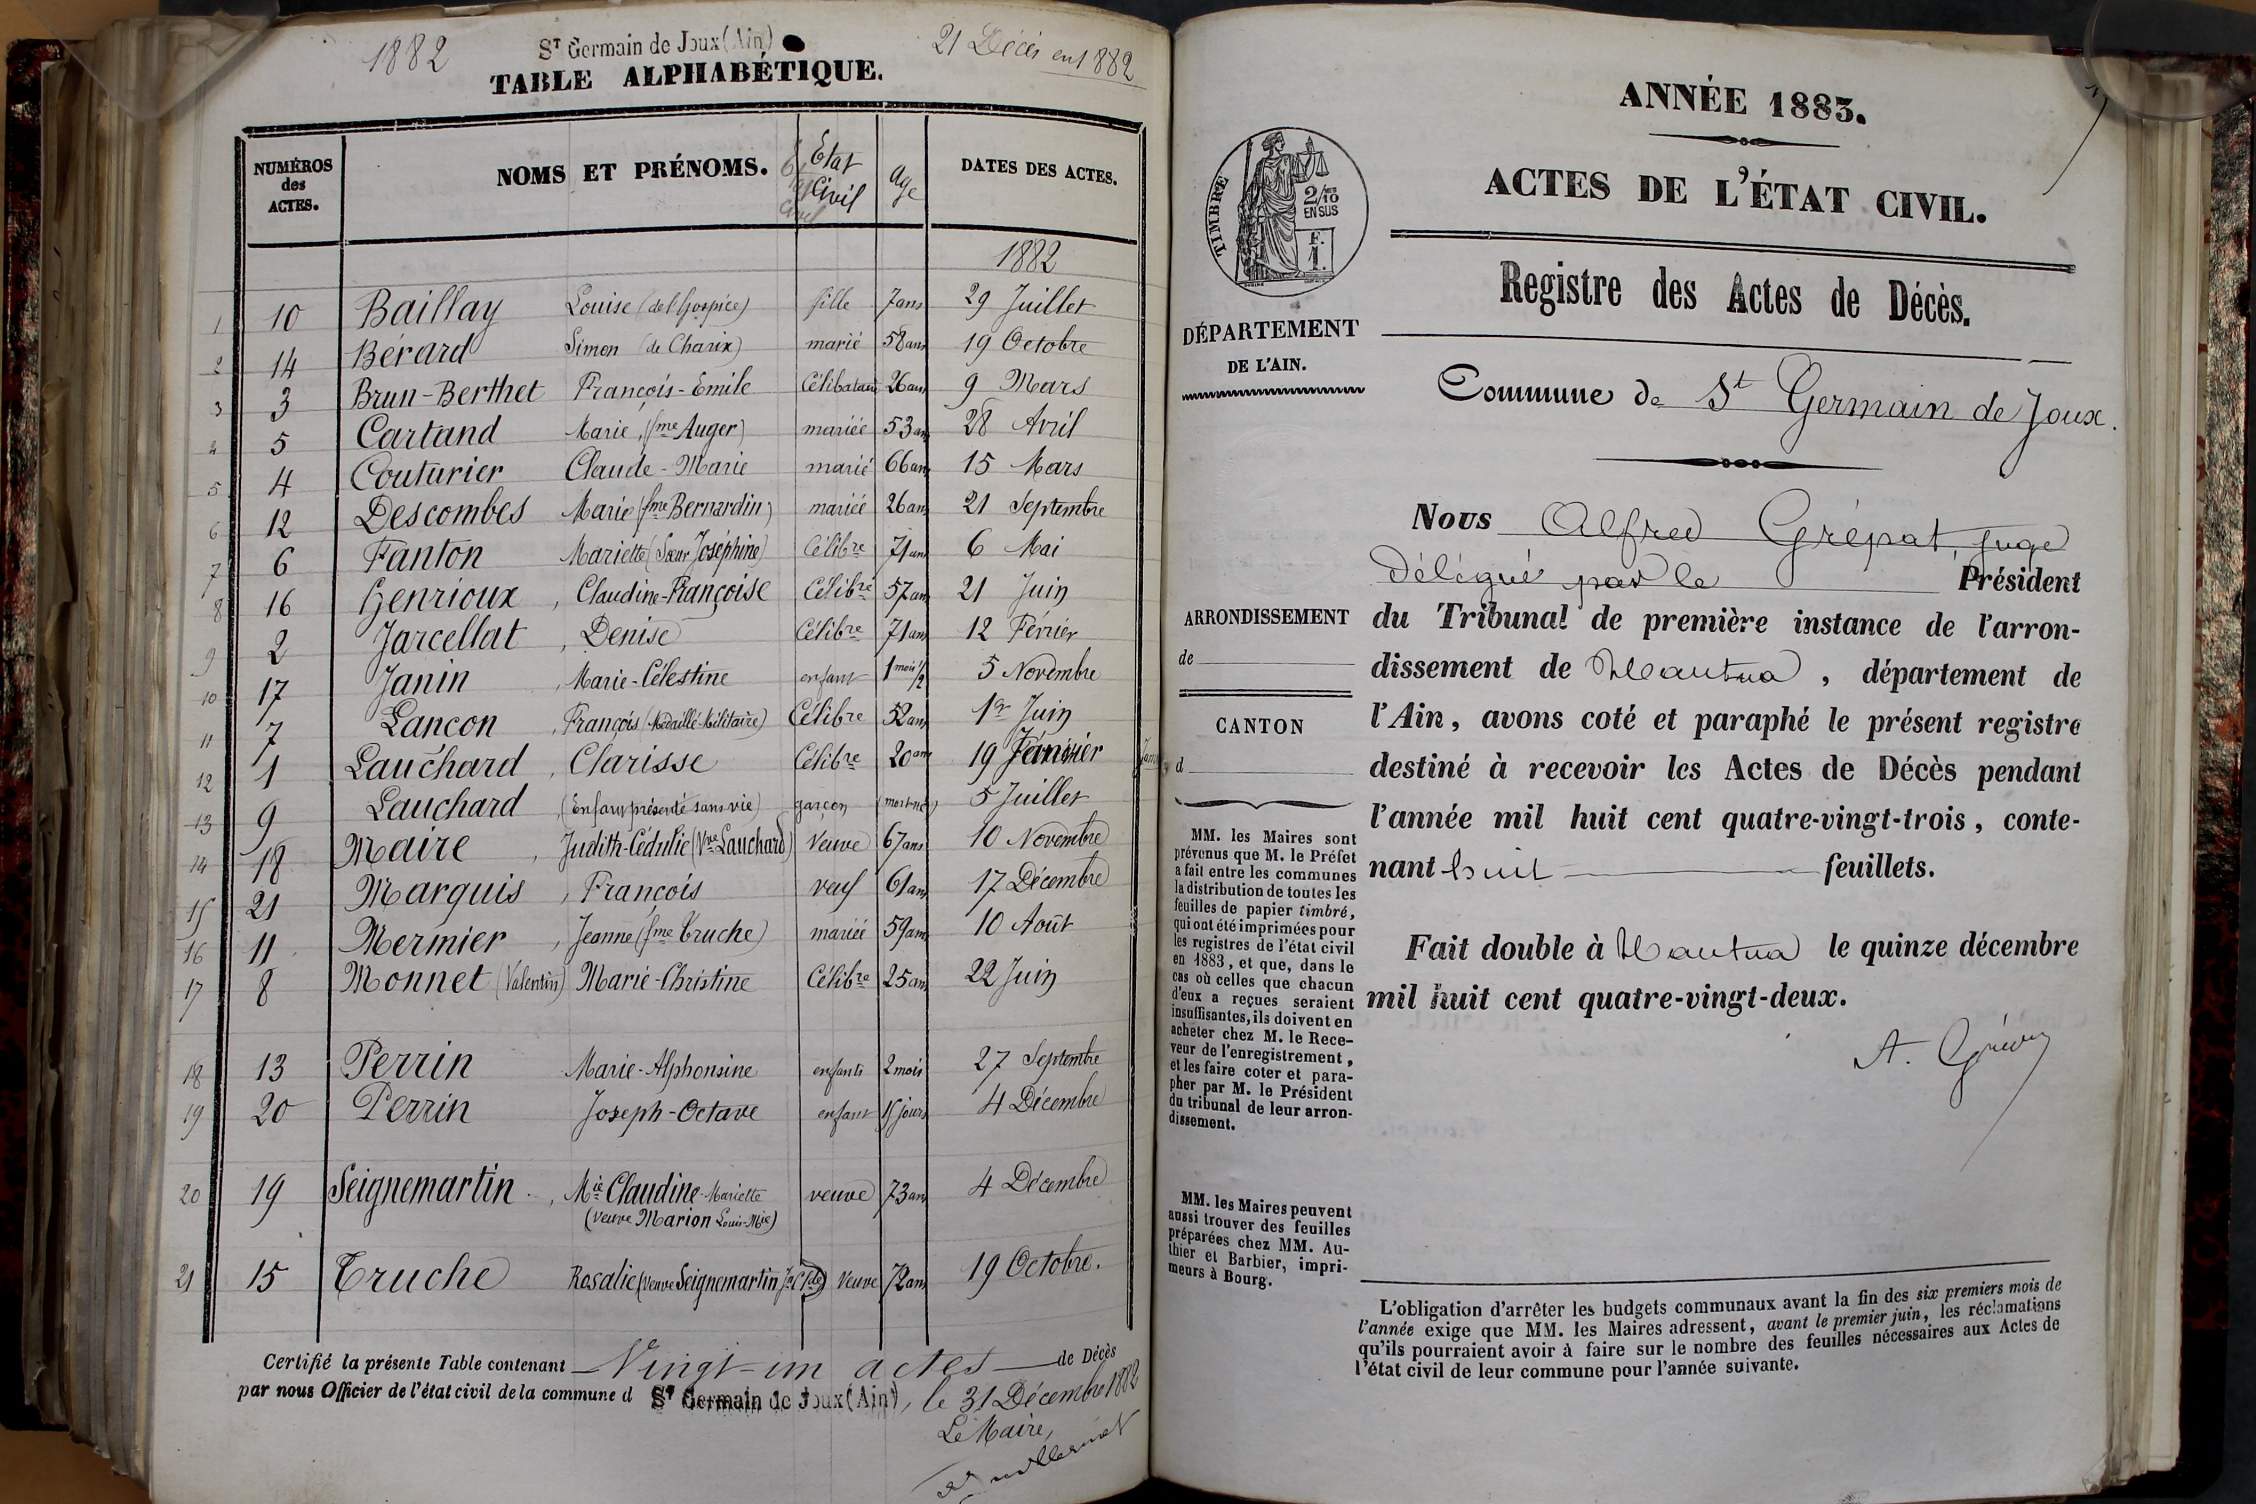 1882
St Germain de Joux (Ain)
21 Décès en 1882
TABLE ALPHABÉTIQUE.
NUMÉROS des ACTES. NOMS ET PRÉNOMS. Etat Civil Age DATES DES ACTES.
1882
1 10 Baillay Louise (de l'hospice) fille 7 ans 29 Juillet
2 14 Bérard Simon (de Charix) marié 58 ans 19 Octobre
3 3 Brun-Berthet François-Emile Célibataire 26 ans 9 Mars
4 5 Cartand Marie, (fme Auger) mariée 53 ans 28 Avril
5 4 Couturier Claude-Marie marié 66 ans 15 Mars
6 12 Descombes Marie (fme Bernardin) mariée 26 ans 21 Septembre
7 6 Fanton Mariette (Sœur Joséphine) Célibre 71 ans 6 Mai
8 16 Henrioux, Claudine-Françoise Célibre 57 ans 21 Juin
9 2 Jarcellat, Denise Célibre 71 ans 12 Février
10 17 Janin, Marie-Célestine enfant 1 mois 1/2 5 Novembre
11 7 Lançon, François (Médaillé Militaire) Célibre 52 ans 1er Juin
12 1 Lauchard, Clarisse Célibre 20 ans 19 Janvier
13 9 Lauchard, (Enfant présenté sans vie) garçon (mort-né) 5 Juillet
14 18 Maire, Judith-Cédulie (Vve Lauchard) Veuve 67 ans 10 Novembre
15 21 Marquis, François veuf 61 ans 17 Décembre
16 11 Mermier, Jeanne (fme Truche) mariée 59 ans 10 Août
17 8 Monnet (Valentin) Marie-Christine Célibre 25 ans 22 Juin
18 13 Perrin Marie-Alphonsine enfant 2 mois 27 Septembre
19 20 Perrin Joseph-Octave enfant 15 jours 4 Décembre
20 19 Seignemartin, Mie Claudine-Mariette veuve 73 ans 4 Décembre
(veuve Marion Louis-Mie)
21 15 Truche Rosalie (veuve Seignemartin Veuve 72 ans 19 Octobre.
Certifié la présente Table contenant Vingt-un actes de Décès
par nous Officier de l'état civil de la commune d St Germain de Joux (Ain), le 31 Décembre 1882
Le Maire,
ANNÉE 1883.
ACTES DE L'ÉTAT CIVIL.
TIMBRE
2/10 EN SUS
F. 1.
Registre des Actes de Décès.
DÉPARTEMENT
DE L'AIN.
Commune de St Germain de Joux.
Nous Alfred Grépat, juge
délégué par le Président
du Tribunal de première instance de l'arron-
dissement de Nantua, département de
l'Ain, avons coté et paraphé le présent registre
destiné à recevoir les Actes de Décès pendant
l'année mil huit cent quatre-vingt-trois, conte-
nant huit feuillets.
Fait double à Nantua le quinze décembre
mil huit cent quatre-vingt-deux.
ARRONDISSEMENT
de
CANTON
d
MM. les Maires sont
prévenus que M. le Préfet
a fait entre les communes
la distribution de toutes les
feuilles de papier timbré,
qui ont été imprimées pour
les registres de l'état civil
en 1883, et que, dans le
cas où celles que chacun
d'eux a reçues seraient
insuffisantes, ils doivent en
acheter chez M. le Rece-
veur de l'enregistrement,
et les faire coter et para-
pher par M. le Président
du tribunal de leur arron-
dissement.
MM. les Maires peuvent
aussi trouver des feuilles
préparées chez MM. Au-
thier et Barbier, impri-
meurs à Bourg.
L'obligation d'arrêter les budgets communaux avant la fin des six premiers mois de
l'année exige que MM. les Maires adressent, avant le premier juin, les réclamations
qu'ils pourraient avoir à faire sur le nombre des feuilles nécessaires aux Actes de
l'état civil de leur commune pour l'année suivante.